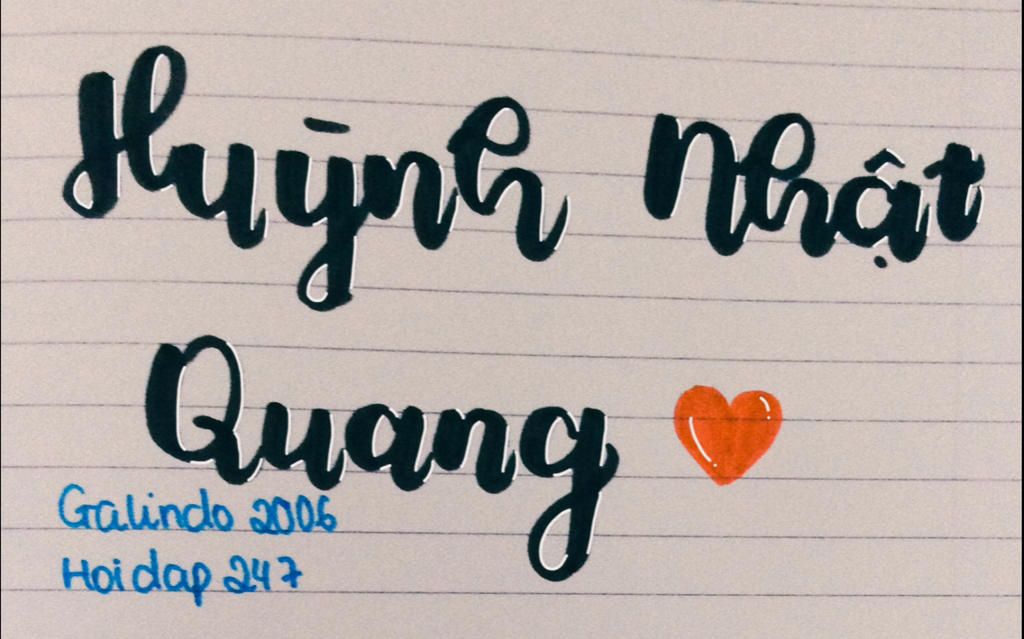 Huỳnh Nhật
Quang
Galindo 2006
Hoidap 247